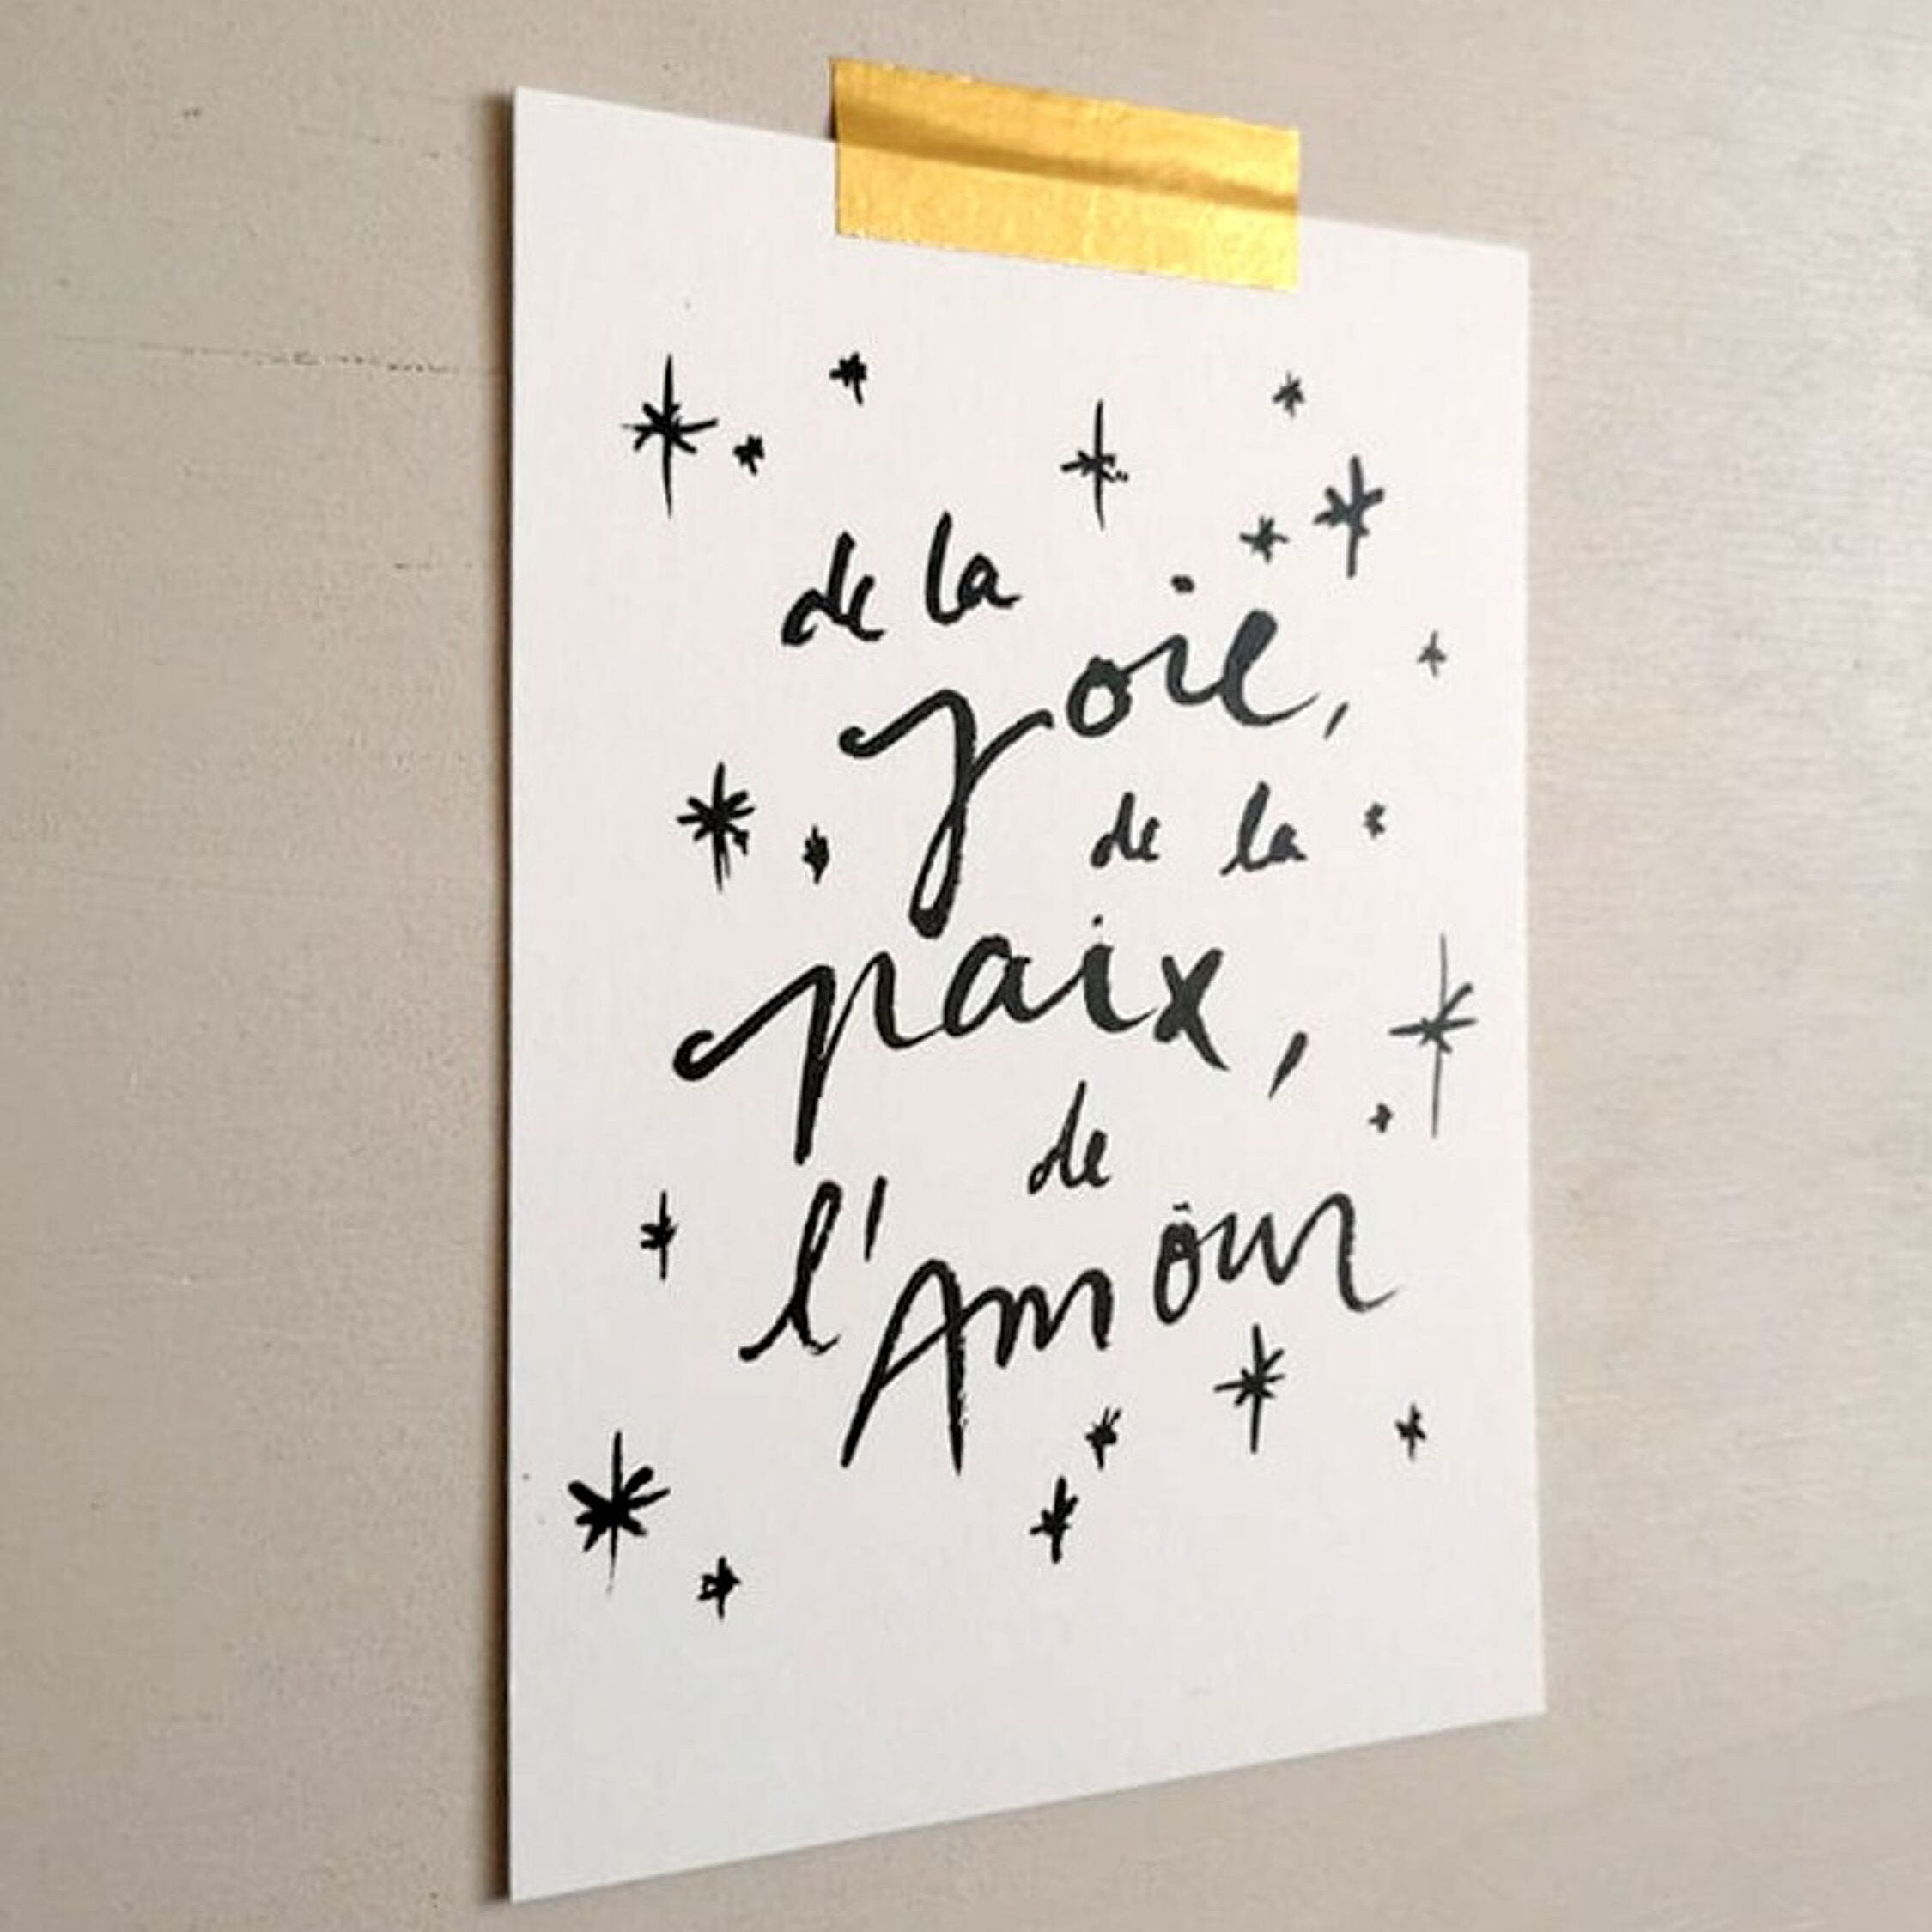 de la
joie,
de la
paix,
de
l'Amour